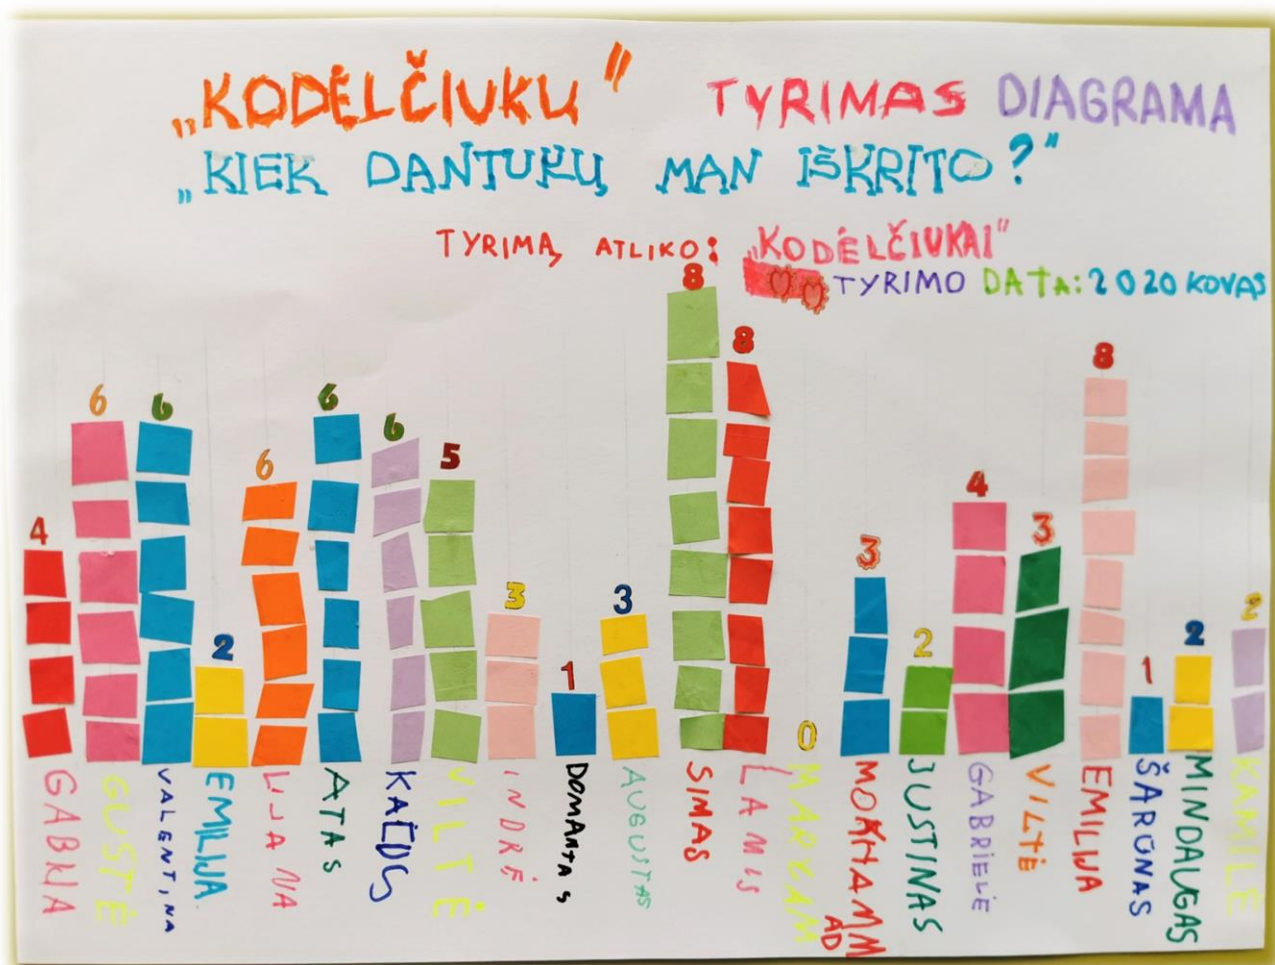 „KODĖLČIUKU" TYRIMAS DIAGRAMA
„KIEK DANTUKŲ MAN IŠKRITO?"
TYRIMĄ ATLIKO: „KODĖLČIUKAI"
TYRIMO DATA: 2020 KOVAS
4 6 6 2 6 6 6 5 3 1 3 8 8 0 3 2 4 3 8 1 2 2
GABRIA
GUSTĖ
VALENTINA
EMILIJA
LIJANA
ATAS
VILTĖ
INDRĖ
DOMANTAS
AUGUSTAS
SIMAS
LAMIS
MARYAM
MOKHAMMAD
JUSTINAS
GABRIELĖ
VILTĖ
EMILIJA
ŠARŪNAS
MINDAUGAS
KAMILĖ